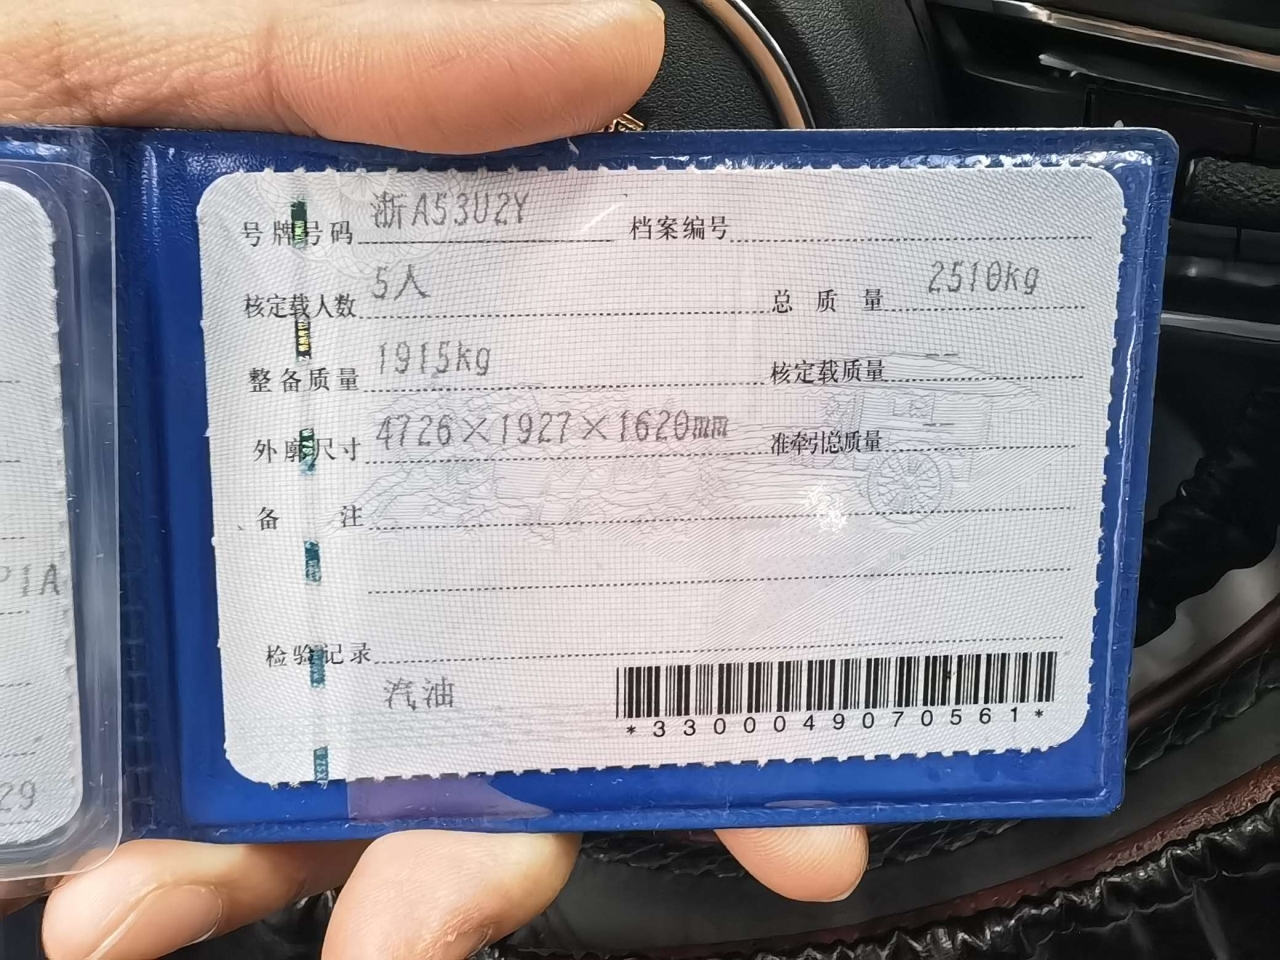 号牌号码 浙A53U2Y 档案编号
核定载人数 5人 总质量 2510kg
整备质量 1915kg 核定载质量 --
外廓尺寸 4726×1927×1620mm 准牵引总质量 --
备注
检验记录
汽油
*3300049070561*
P1A
29